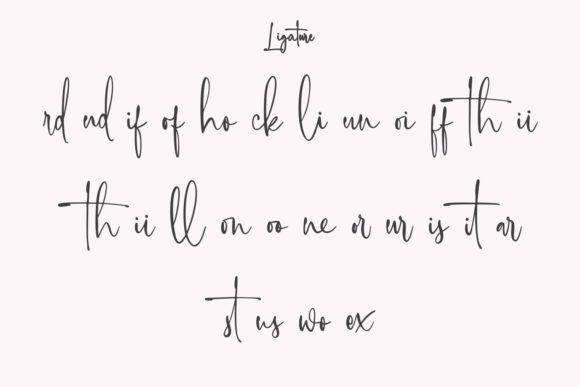 Ligature
rd nd if of ho ck li un oi ff th ii
th ii ll on oo ne or ur is it ar
st us wo ex